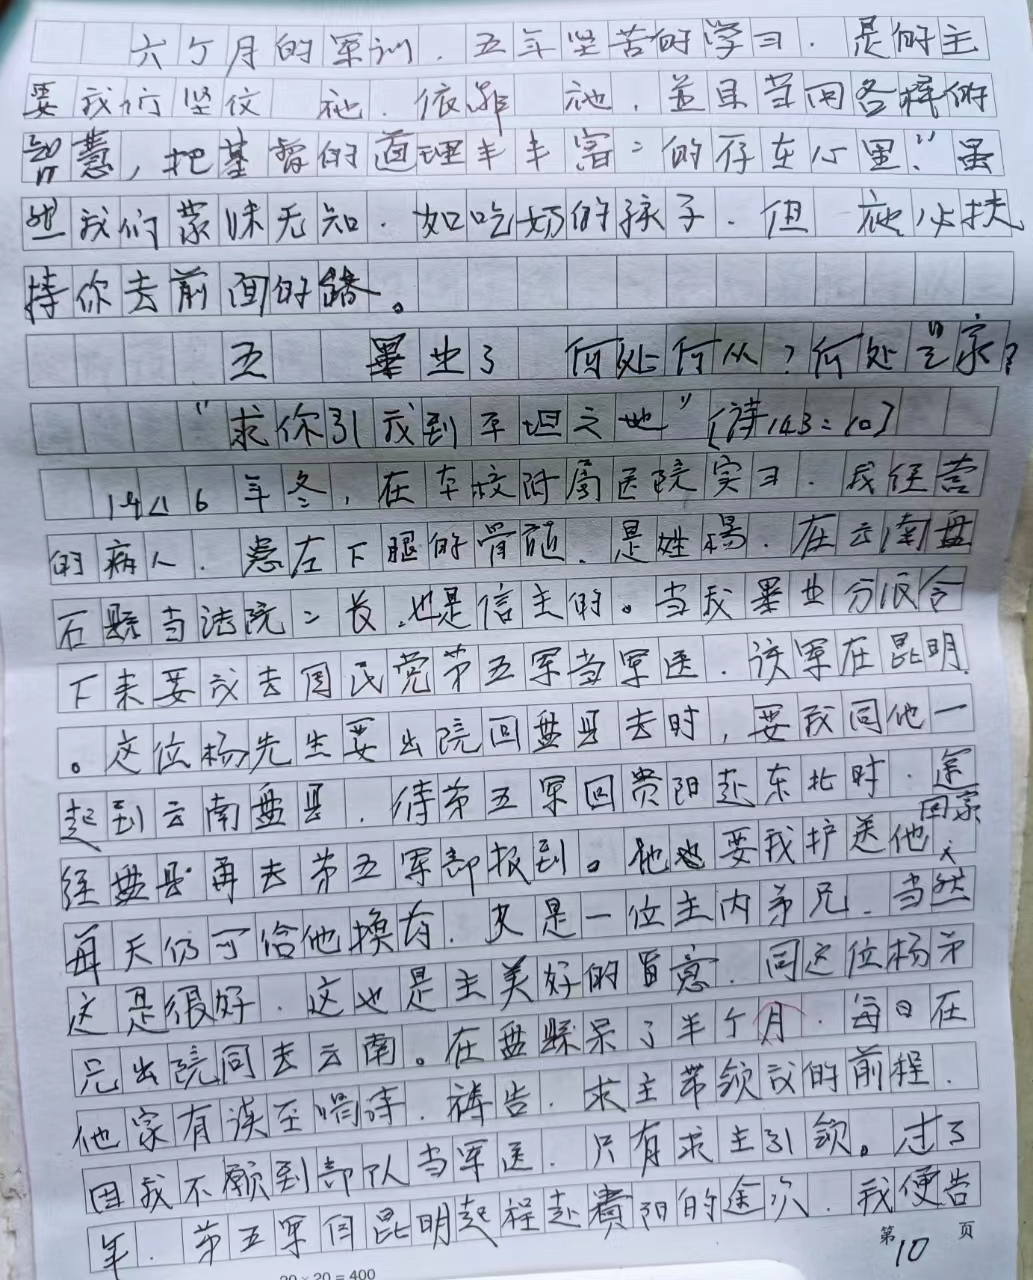 六个月的军训．五年坚苦的学习．是的主
要我们坚仗 祂．依靠 祂．並且要用各样的
智慧，把基督的道理丰丰富〻的存在心里．”虽
然我们蒙昧无知．如吃奶的孩子．但 祂必扶
持你去前面的路。
五 畢业了 何处何从？何处是家？
“求你引我到平坦之地”［诗143：10］
1946年冬，在本校附属医院实习．我经营
的病人．患左下腿的骨髓．是姓杨．在云南盘
石县当法院〻长．也是信主的。当我畢业分派令
下来要我去国民党第五军当军医．该军在昆明
。这位杨先生要出院回盘县去时，要我同他一
起到云南盘县．待第五军回贵阳赴东北时．途
经盘县再去第五军部报到。他也要我护送他回家，
每天仍可给他换药．又是一位主内弟兄．当然
这是很好．这也是主美好的旨意．同这位杨弟
兄出院同去云南。在盘縣呆了半个月．每日在
他家有读圣唱诗．祷告．求主带领我的前程．
因我不願到部队当军医．只有求主引领。过了
年．第五军自昆明起程赴貴阳的途次．我便告
第10页
20×20＝400